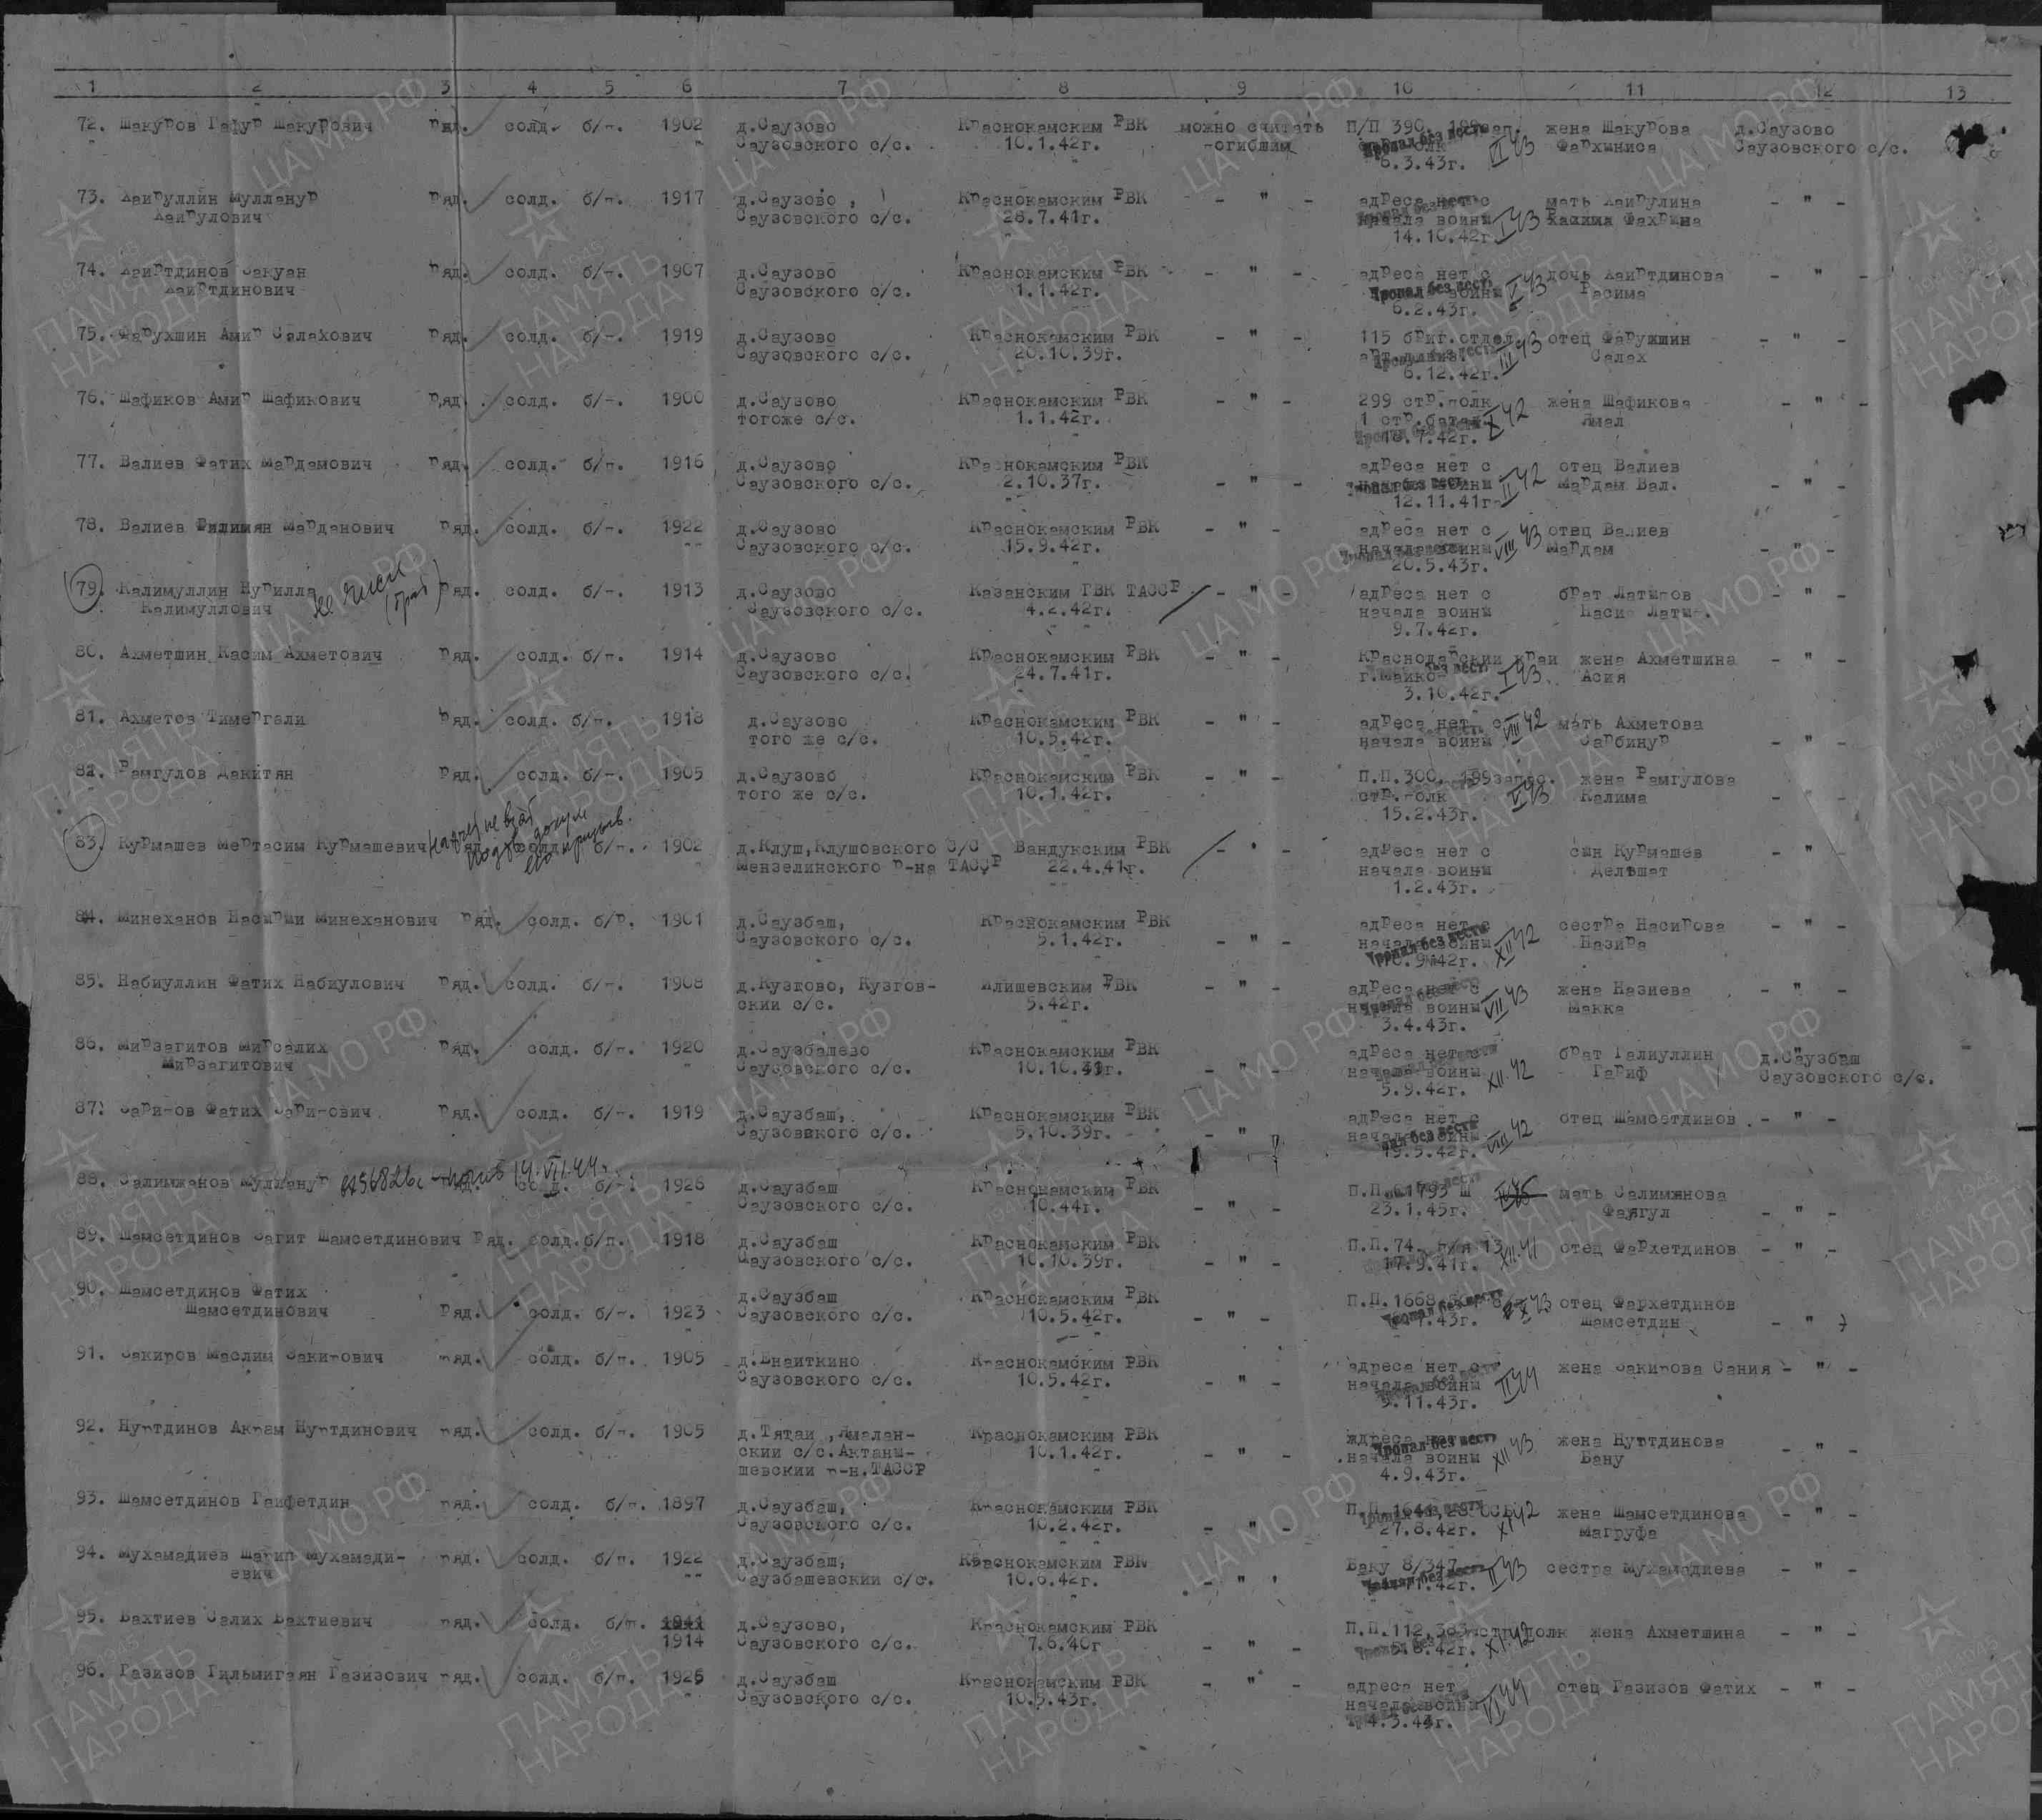 1 2 3 4 5 6 7 8 9 10 11 12 13
72. Шакуров Гафур Шакурович Ряд. солд. б/п. 1902 д.Саузово Краснокамским РВК можно считать П/П 390, 199зап. жена Шакурова д.Саузово
Саузовского с/с. 10.1.42г. погибшим Пропал без вести VI 43 Фархыниса Саузовского с/с.
6.3.43г.
73. Хайруллин Мулланур Ряд. солд. б/п. 1917 д.Саузово, Краснокамским РВК - " - адреса нет с мать Хайрулина - " -
Хайрулович Саузовского с/с. 28.7.41г. начала войны I 43 Фахрына
14.10.42г.
74. Хайртдинов Закуан Ряд. солд. б/п. 1907 д.Саузово Краснокамским РВК - " - адреса нет с дочь Хайртдинова - " -
Хайртдинович Саузовского с/с. 1.1.42г. Пропал без вести войны 43 Расима
6.2.43г.
75. Фарухшин Амир Салахович Ряд. солд. б/п. 1919 д.Саузово Краснокамским РВК - " - 115 бриг.отдел. отец Фарушин - " -
Саузовского с/с. 20.10.39г. III 43 Салах
6.12.42г.
76. Шафиков Амир Шафикович Ряд. солд. б/п. 1900 д.Саузово Краснокамским РВК - " - 299 стр.полк жена Шафикова - " -
тогоже с/с. 1.1.42г. 1 стр.батал. X 42 Ямал
10.7.42г.
77. Валиев Фатих Мардамович Ряд. солд. б/п. 1916 д.Саузово Краснокамским РВК адреса нет с отец Валиев
Саузовского с/с. 2.10.37г. - " - Пропал без вести II 42 Мардам Вал. - " -
12.11.41г.
78. Валиев Филимян Марданович Ряд. солд. б/п. 1922 д.Саузово Краснокамским РВК - " - адреса нет с отец Валиев
Саузовского с/с. 15.9.42г. начала войны VIII 43 Мардам - " -
20.5.43г.
79. Калимуллин Нурилла (брат) Ряд. солд. б/п. 1913 д.Саузово Казанским ГВК ТАССР - " - адреса нет с брат Латыпов - " -
Калимуллович Саузовского с/с. 4.2.42г. начала войны Насип Латып.
9.7.42г.
80. Ахметшин Касим Ахметович Ряд. солд. б/п. 1914 д.Саузово Краснокамским РВК - " - Краснодарский край жена Ахметшина - " -
Саузовского с/с. 24.7.41г. г.Майкоп I 43 Асия
3.10.42г.
81. Ахметов Тимергали Ряд. солд. б/п. 1918 д.Саузово Краснокамским РВК - " - адреса нет с VIII 42 мать Ахметова
того же с/с. 10.5.42г. начала войны Сарбинур - " -
82. Рамгулов Дакитян Ряд. солд. б/п. 1905 д.Саузово Краснокамским РВК - " - П.П.300, 199запас. жена Рамгулова
того же с/с. 10.1.42г. стр.полк V 43 Калима - " -
15.2.43г.
83. Курмашев Мертасим Курмашевич На учет не взят солд. б/п. 1902 д.Клуш,Клушовского с/с Вандукским РВК - " - адреса нет с сын Курмашев - " -
Мензелинского р-на ТАССР 22.4.41г. начала войны Дельшат
1.2.43г.
84. Минеханов Насырми Минеханович Ряд. солд. б/р. 1901 д.Саузбаш, Краснокамским РВК адреса нет с сестра Насирова - " -
Саузовского с/с. 5.1.42г. - " - начала войны XII 42 Назира
85. Набиуллин Фатих Набиулович Ряд. солд. б/п. 1908 д.Кузгово, Кузгов- Илишевским РВК - " - адреса нет с жена Назиева - " -
ский с/с. 5.42г. начала войны VII 43 Макка
3.4.43г.
86. Мирзагитов Мирсалих Ряд. солд. б/п. 1920 д.Саузбашево Краснокамским РВК адреса нет с брат Галиуллин д.Саузбаш
Мирзагитович Саузовского с/с. 10.10. - " - начала войны XII.42 Гариф Саузовского с/с.
5.9.42г.
87. Зарипов Фатих Зарипович Ряд. солд. б/п. 1919 д.Саузбаш, Краснокамским РВК адреса нет с отец Шамсетдинов - " -
Саузовского с/с. 5.10.39г. - " начала войны VIII 42
19.5.42г.
88. Салимжанов Мулланур погиб 14.VII.44г. б/п. 1926 д.Саузбаш Краснокамским РВК П.П.61793 Ш мать Салимянова
Саузовского с/с. 10.44г. - " - 23.1.45г. Фаягул - " -
89. Шамсетдинов Загит Шамсетдинович Ряд. солд. б/п. 1918 д.Саузбаш Краснокамским РВК П.П.74. п/я 13 отец Фархетдинов - " -
Саузовского с/с. 10.10.39г. - " - 17.9.41г. XII.41
90. Шамсетдинов Фатих д.Саузбаш Краснокамским РВК П.П.1668 отец Фархетдинов
Шамсетдинович Ряд. солд. б/п. 1923 Саузовского с/с. 10.5.42г. - " - Пропал без вести X 43 Шамсетдин - " -
91. Закиров Маслим Закирович ряд. солд. б/п. 1905 д.Енаиткино Краснокамским РВК адреса нет с жена Закирова Сания - " -
Саузовского с/с. 10.5.42г. - " - начала войны II 44
9.11.43г.
92. Нуртдинов Акрам Нуртдинович ряд. солд. б/п. 1905 д.Тятаи ,Ямалан- Краснокамским РВК жена Нуртдинова
ский с/с.Актаны- 10.1.42г. - " - начала войны XII 43 Бану - " -
шевский р-н.ТАССР 4.9.43г.
93. Шамсетдинов Гаифетдин ряд. солд. б/п. 1897 д.Саузбаш, Краснокамским РВК П.П.1644,28 ОСБ жена Шамсетдинова - " -
Саузовского с/с. 10.2.42г. - " - 27.8.42г. XI 42 Магруфа
94. Мухамадиев Шарип Мухамади- ряд. солд. б/п. 1922 д.Саузбаш, Краснокамским РВК Баку 8/347 сестра Мухамадиева - " -
евич Саузбашевский с/с. 10.6.42г. - " II 43
95. Бахтиев Салих Бактиевич ряд. солд. б/п. 1841 д.Саузово, Краснокамским РВК П.П.112,363 стр.полк жена Ахметшина - " -
1914 Саузовского с/с. 7.6.40г - " - XI.42
96. Газизов Гильмигаян Газизович ряд. солд. б/п. 1925 д.Саузбаш Краснокамским РВК - " - адреса нет отец Газизов Фатих - " -
Саузовского с/с. 10.5.43г. начала войны VI 44
4.3.44г.
ЦА МО РФ
ПАМЯТЬ НАРОДА